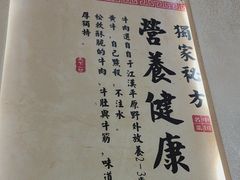 獨家秘方
營養健康
牛肉選自自于江漢平原野外放養2-3
黃牛，自己熬段，不注水，
松枝酥脆的牛肉，牛肚與牛筋，味道
厚獨特。